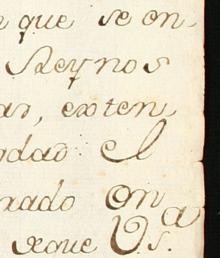 que se on
Reynos
as, exten
rdad el
rado Ona
xque V.s.